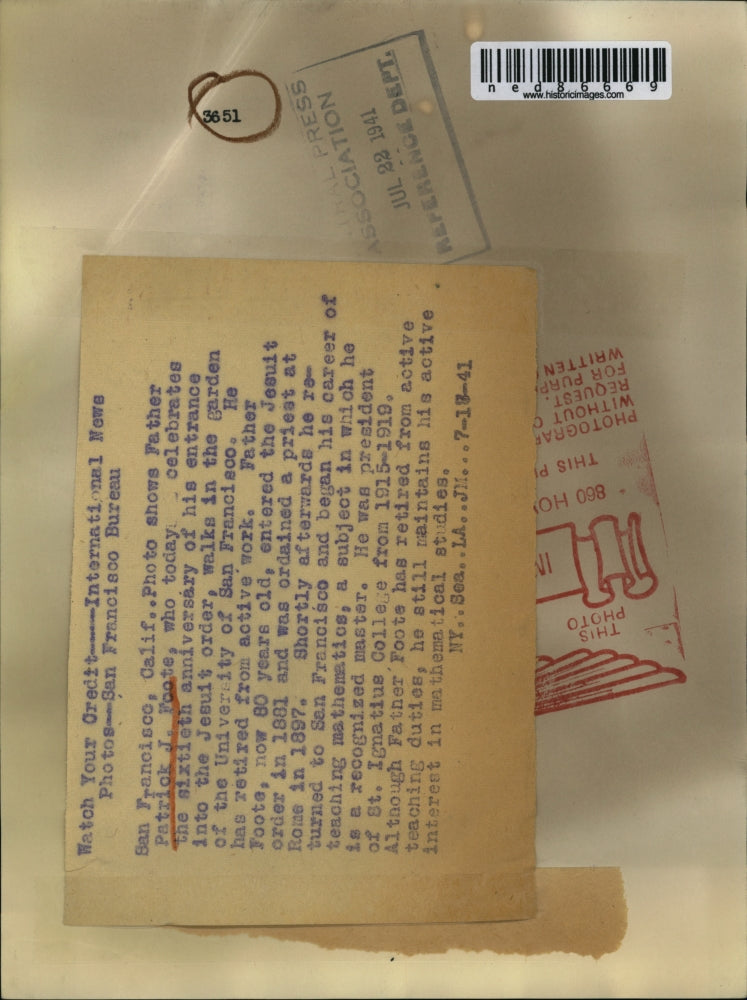 n e d 8 6 6 6 9
www.historicimages.com
3651
PRESS
ASSOCIATION
JUL 22 1941
REFERENCE DEPT.
Watch Your Credit----International News
Photos--San Francisco Bureau
San Francisco, Calif..Photo shows Father
Patrick J. Foote, who today celebrates
the sixtieth anniversary of his entrance
into the Jesuit order, walks in the garden
of the University of San Francisco. He
has retired from active work. Father
Foote, now 80 years old, entered the Jesuit
order in 1881 and was ordained a priest at
Rome in 1897. Shortly afterwards he re-
turned to San Francisco and began his career of
teaching mathematics, a subject in which he
is a recognized master. He was president
of St. Ignatius College from 1915-1919.
Although Father Foote has retired from active
teaching duties, he still maintains his active
interest in mathematical studies.
NY..Sea..LA..JM...7-18-41
THIS
PHOTO
IN
860 HO
THIS
PHOTOGRA
WITHOUT
REQUEST.
FOR PURP
WRITTEN